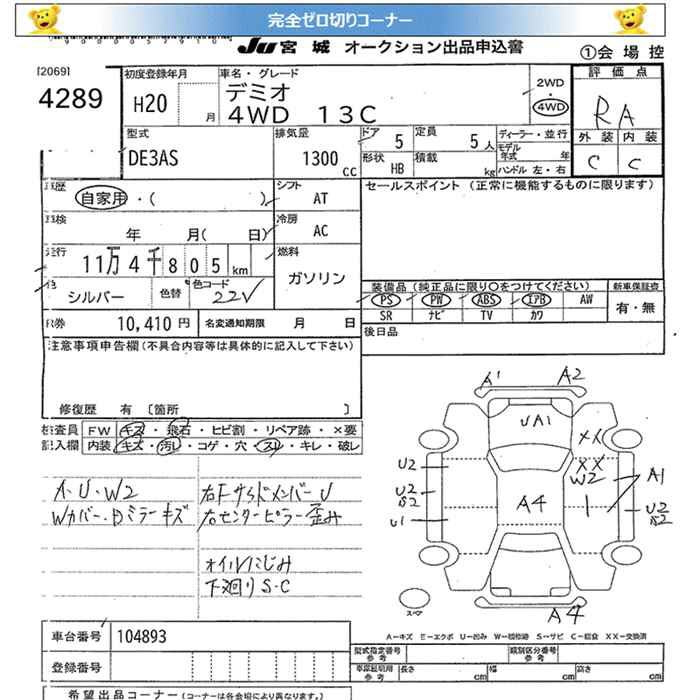 完全ゼロ切りコーナー
JU 宮城 オークション出品申込書
①会場控
[2069]
4289
初度登録年月
H20
月
車名・グレード
デミオ
4WD 13C
2WD
・
4WD
評価点
RA
外装 内装
C C
型式
DE3AS
排気量
1300
cc
ドア
5
定員
5
人
形状
HB
積載
kg
ディーラー・並行
モデル
年式
年
ハンドル 左・右
車歴
自家用・( )
シフト
AT
車検
年 月( 日)
冷房
AC
走行
11万4千805km
燃料
ガソリン
色
シルバー
色替
色コード
22V
R券
10,410 円
名変通知期限 月 日
セールスポイント (正常に機能するものに限ります)
装備品 (純正品に限り○をつけてください)
新車保証書
PS PW ABS エアB AW
SR ナビ TV カワ
有・無
後日品
注意事項申告欄(不具合内容等は具体的に記入して下さい)
修復歴 有 〔箇所 〕
検査員
記入欄
FW キズ・飛石・ヒビ割・リペア跡・×要
内装 キズ・汚レ・コゲ・穴・スレ・キレ・破レ
A・U・W2
Wカバー・Dミラーキズ
右Fサイドメンバー U
右センターピラー歪み
オイルにじみ
下廻りS・C
A1
A2
UA1
XX
XX
W2
U2
U2
S2
U1
A4
A1
U2
S2
A4
スペア
A=キズ E=エクボ U=凹み W=補修跡 S=サビ C=腐食 XX=交換済
車台番号 104893
登録番号
型式指定番号
参考
類別区分番号
参考
車庫証明用
参考
長さ
cm
幅
cm
高さ
cm
希望出品コーナー (コーナーは各会場により異なります。)